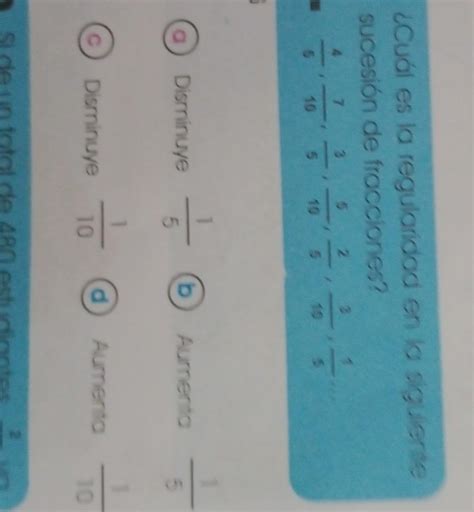 ¿Cuál es la regularidad en la siguiente
sucesión de fracciones?
4/5, 7/10, 3/5, 5/10, 2/5, 3/10, 1/5...
a Disminuye 1/5 b Aumenta 1/5
c Disminuye 1/10 d Aumenta 1/10
Si de un total de 480 estudiantes 2